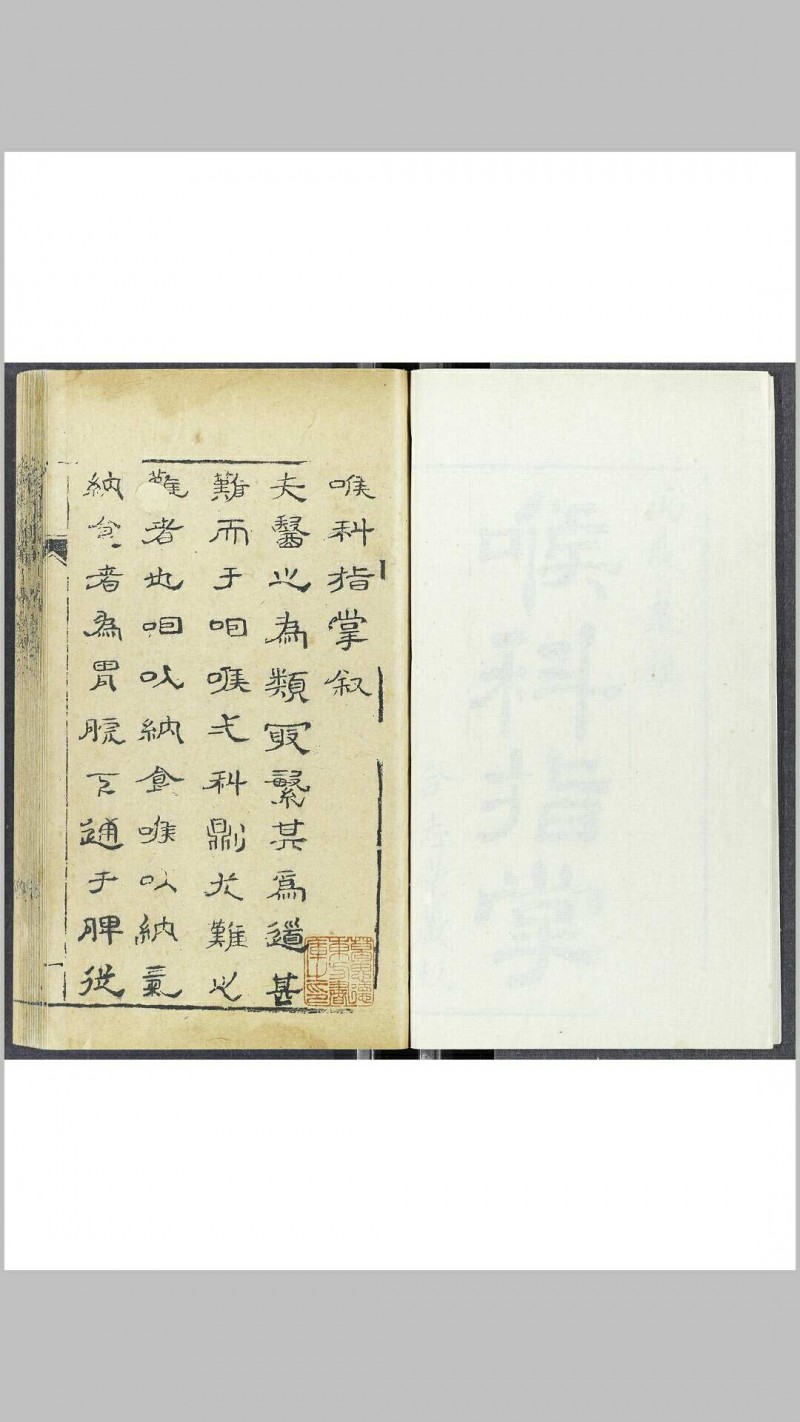 喉科指掌叙
夫醫之為類冣繁其爲道甚
難而于咽喉弌科則尤難之
難者也咽以納食喉以納氣
納食者為胃脘下通于脾從